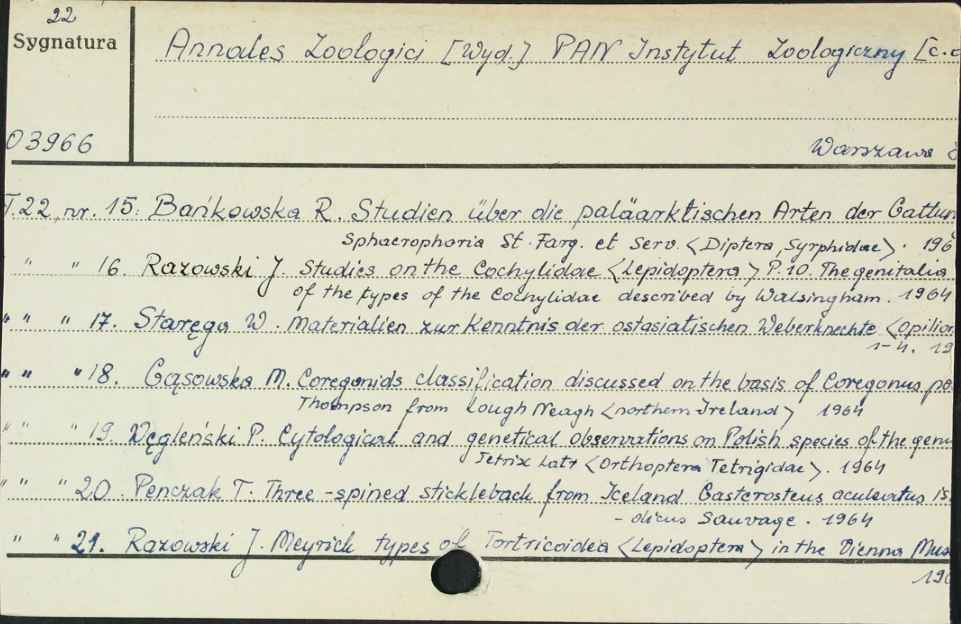 22
Sygnatura
Annales Zoologici [Wyd.] PAN Instytut Zoologiczny [c.d
03966
Warszawa
T.22, nr. 15. Bańkowska R. Studien über die paläarktischen Arten der Gattun
Sphaerophoria St. Farg. et Serv. <Diptera, Syrphidae>. 196
" " 16. Razowski J. Studies on the Cochylidae <Lepidoptera> P.10. The genitalia
of the types of the Cochylidae described by Walsingham. 1964
" " " 17. Staręga W. Materialien zur Kenntnis der ostasiatischen Weberknechte <Opilion
1-4. 19
" " " 18. Gąsowska M. Coregonids classification discussed on the basis of Coregonus po
Thompson from Lough Neagh <northern-Ireland> 1964
" " " 19. Węgleński P. Cytological and genetical observations on Polish species of the genu
Tetrix Latr <Orthoptera Tetrigidae>. 1964
" " " 20. Penczak T. Three-spined stickleback from Iceland Gasterosteus aculeatus is
-dicus Sauvage. 1964
" " 21. Razowski J. Meyrick types of Tortricoidea <Lepidoptera> in the Vienna Mus
196